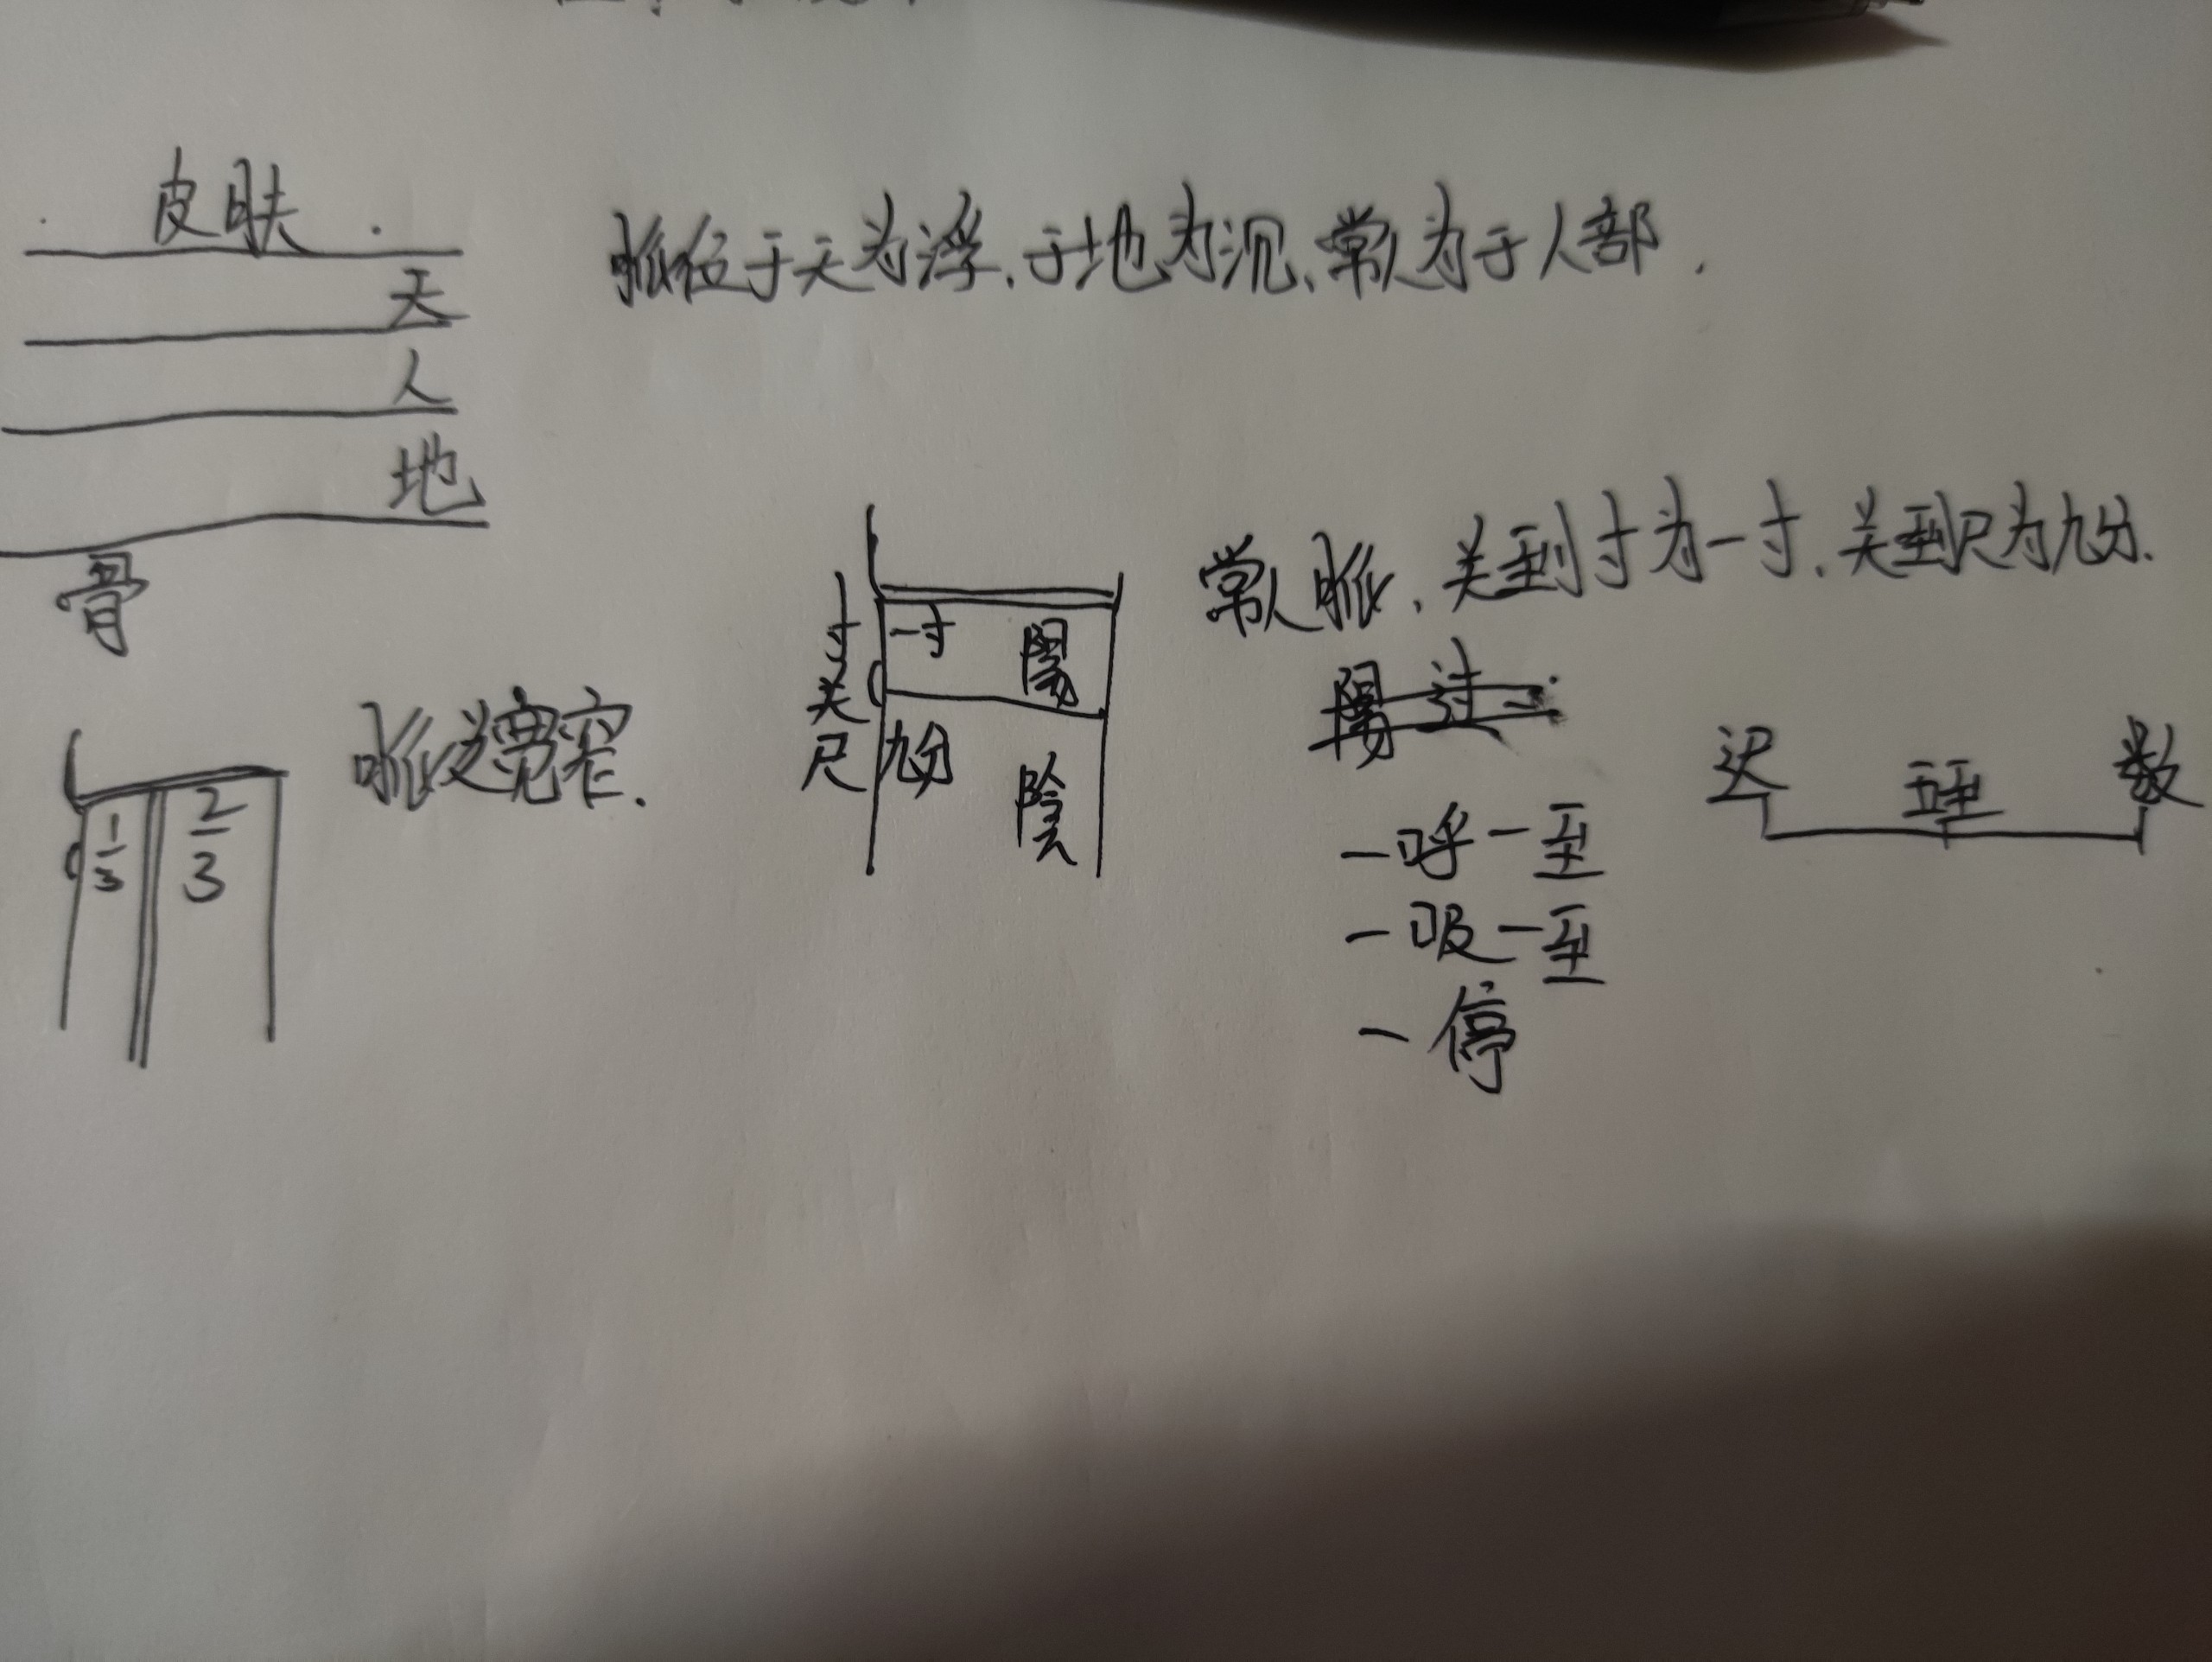 皮肤
天
人
地
骨
脈位于天为浮、于地为沉、常人为于人部.
1/3
2/3
脈道宽窄.
寸
关
尺
一寸
陽
九分
陰
常人脈、关到寸为一寸、关到尺为九分.
陽过
一呼一至
一吸一至
一停
迟
五至
数